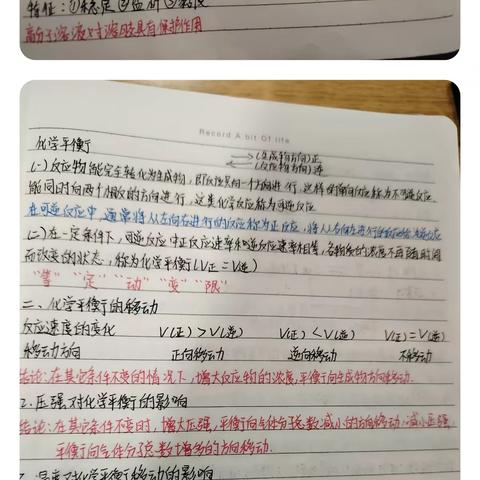 特征:①稳定②盐析③黏度
高分子溶液对溶胶具有保护作用
Record A bit Of life
化学平衡
(生成物方向)正
(反应物方向)逆
(一)反应物能完全转化为生成物,即反应只向一个方向进行,这样的
能同时向两个相反的方向进行,这类化学反应称为可逆反应
在可逆反应中,通常将从左向右进行的反应称为正反应,将从右向左进行的
(二)在一定条件下,可逆反应中正反应速率和逆反应速率相等,各物质的浓度不再随时间
而改变的状态,称为化学平衡(V正=V逆)
"等" "定" "动" "变" "限"
二、化学平衡的移动
反应速度的变化 V(正)>V(逆) V(正)<V(逆) V(正)=V(逆)
移动方向 正向移动 逆向移动 不移动
结论:在其它条件不变的情况下,增大反应物的浓度,平衡向生成物方向移动.
2.压强对化学平衡的影响
结论:在其它条件不变时,增大压强,平衡向气体分子总数减小的方向移动.减小压强,
平衡向气体分子总数增多的方向移动.
对化学平衡移动的影响